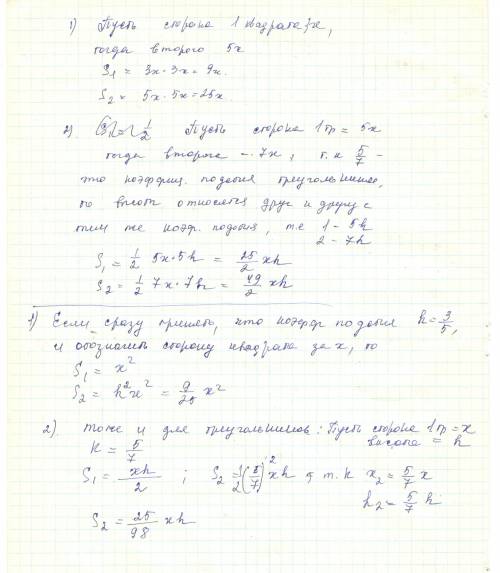 1) Пусть сторона 1 квадрата 3x,
тогда второго 5x
S₁ = 3x·3x = 9x.
S₂ = 5x·5x = 25x
2) Пусть сторона 1 тр = 5x
тогда второго – 7x, т.к 5/7 –
это коэффиц. подобия треугольников,
то высоты относятся друг к другу с
тем же коэф. подобия, т.е 1 – 5h
2 – 7h
S₁ = 1/2 5x·5h = 25/2 xh
S₂ = 1/2 7x·7h = 49/2 xh
1) Если сразу принять, что коэфф подобия k = 3/5,
и обозначить сторону квадрата за x, то
S₁ = x²
S₂ = k²x² = 9/25 x²
2). тоже и для треугольников: Пусть сторона 1 тр = x
высота = h
k = 5/7
S₁ = xh/2 ; S₂ = 1/2 (5/7)² xh т.к x₂ = 5/7 x
h₂ = 5/7 h
S₂ = 25/98 xh